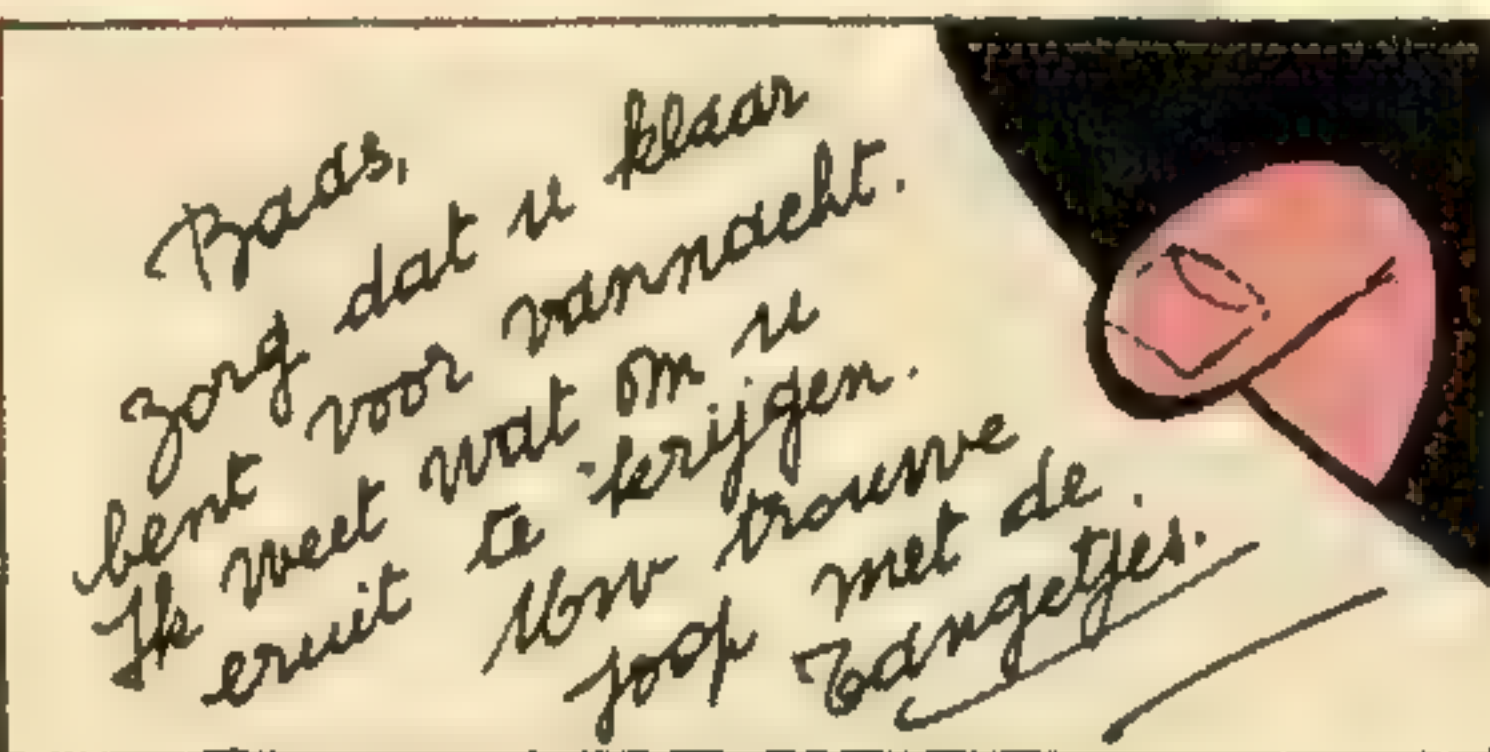 Baas,
zorg dat u klaar
bent voor vannacht.
Ik weet wat om u
eruit te krijgen.
Uw trouwe
Joop met de
Tangetjes.